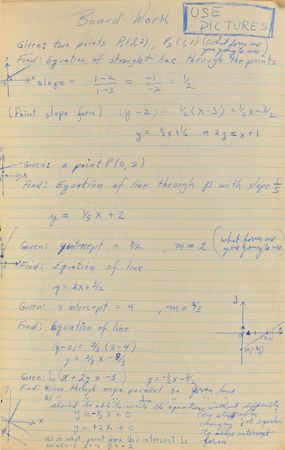 Board Work
USE PICTURES
Given: two points P₁(3,2), P₂(1,1) (what form are you going to use)
Find: Equation of straight line through the points
slope = 1-2/1-3 = -1/-2 = 1/2
(Point slope form) (y-2) = 1/2(x-3) = 1/2x-3/2
y = 1/2x+1/2 2y = x+1
Given: a point P(0,2)
Find: Equation of line through P with slope 1/5
y = 1/5x + 2
Given: y intercept = 3/2, m = 2 (what form are you going to use)
Find: Equation of line
y = 2x+3/2
Given: x intercept = 4, m = 2/3
Find: Equation of line
(y-0) = 2/3(x-4)
y = 2/3x - 8/3
Given: L: x+2y=-5 y=-1/2x-5/2
Find: line through origin parallel to given line
should be able to write the equations without difficulty
changing 1st equation
y = -1/2x + 0
to slope intercept
y = +2x + 0
form
(c) in what point does (b) intersect L
x=-1 y=-2